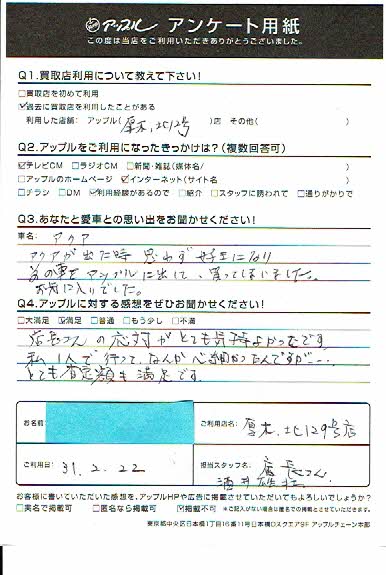 アップル アンケート用紙
この度は当店をご利用いただきありがとうございました。
Q1.買取店利用について教えて下さい!
□買取店を初めて利用
☑過去に買取店を利用したことがある
利用した店舗: アップル( 厚木北12号 )店 その他( )
Q2.アップルをご利用になったきっかけは?(複数回答可)
☑テレビCM □ラジオCM □新聞・雑誌(媒体名/ )
□アップルのホームページ ☑インターネット(サイト名 )
□チラシ □DM ☑利用経験があるので □紹介 □スタッフに誘われて □通りがかりで
Q3.あなたと愛車との思い出をお聞かせください!
車名: アクア
アクアが出た時 思わず好きになり
前の車をアップルに出して、買ってしまいました。
お気に入りでした。
Q4.アップルに対する感想をぜひお聞かせください!
□大満足 ☑満足 □普通 □もう少し □不満
店長さんの応対がとても気持よかったです。
私1人で行って、なんか心細かったんですが…
とても査定額も満足です。
お名前:
ご利用店名: 厚木北129号店
ご利用日: 31.2.22
担当スタッフ名: 店長さん
酒井雄
お客様に書いていただいた感想を、アップルHPや広告に掲載させていただいてもよろしいでしょうか?
□実名で掲載可 □匿名なら掲載可 ☑掲載不可 ※ご記入がない場合は匿名での掲載とさせていただきます。
東京都中央区日本橋1丁目16番11号日本橋Dスクエア9F アップルチェーン本部